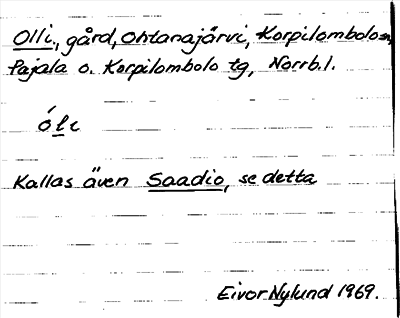 Olli, gård, Ohtanajärvi, Korpilombolo sn,
Pajala o. Korpilombolo tg, Norrb.l.
óli
Kallas även Saadio, se detta
Eivor Nylund 1969.